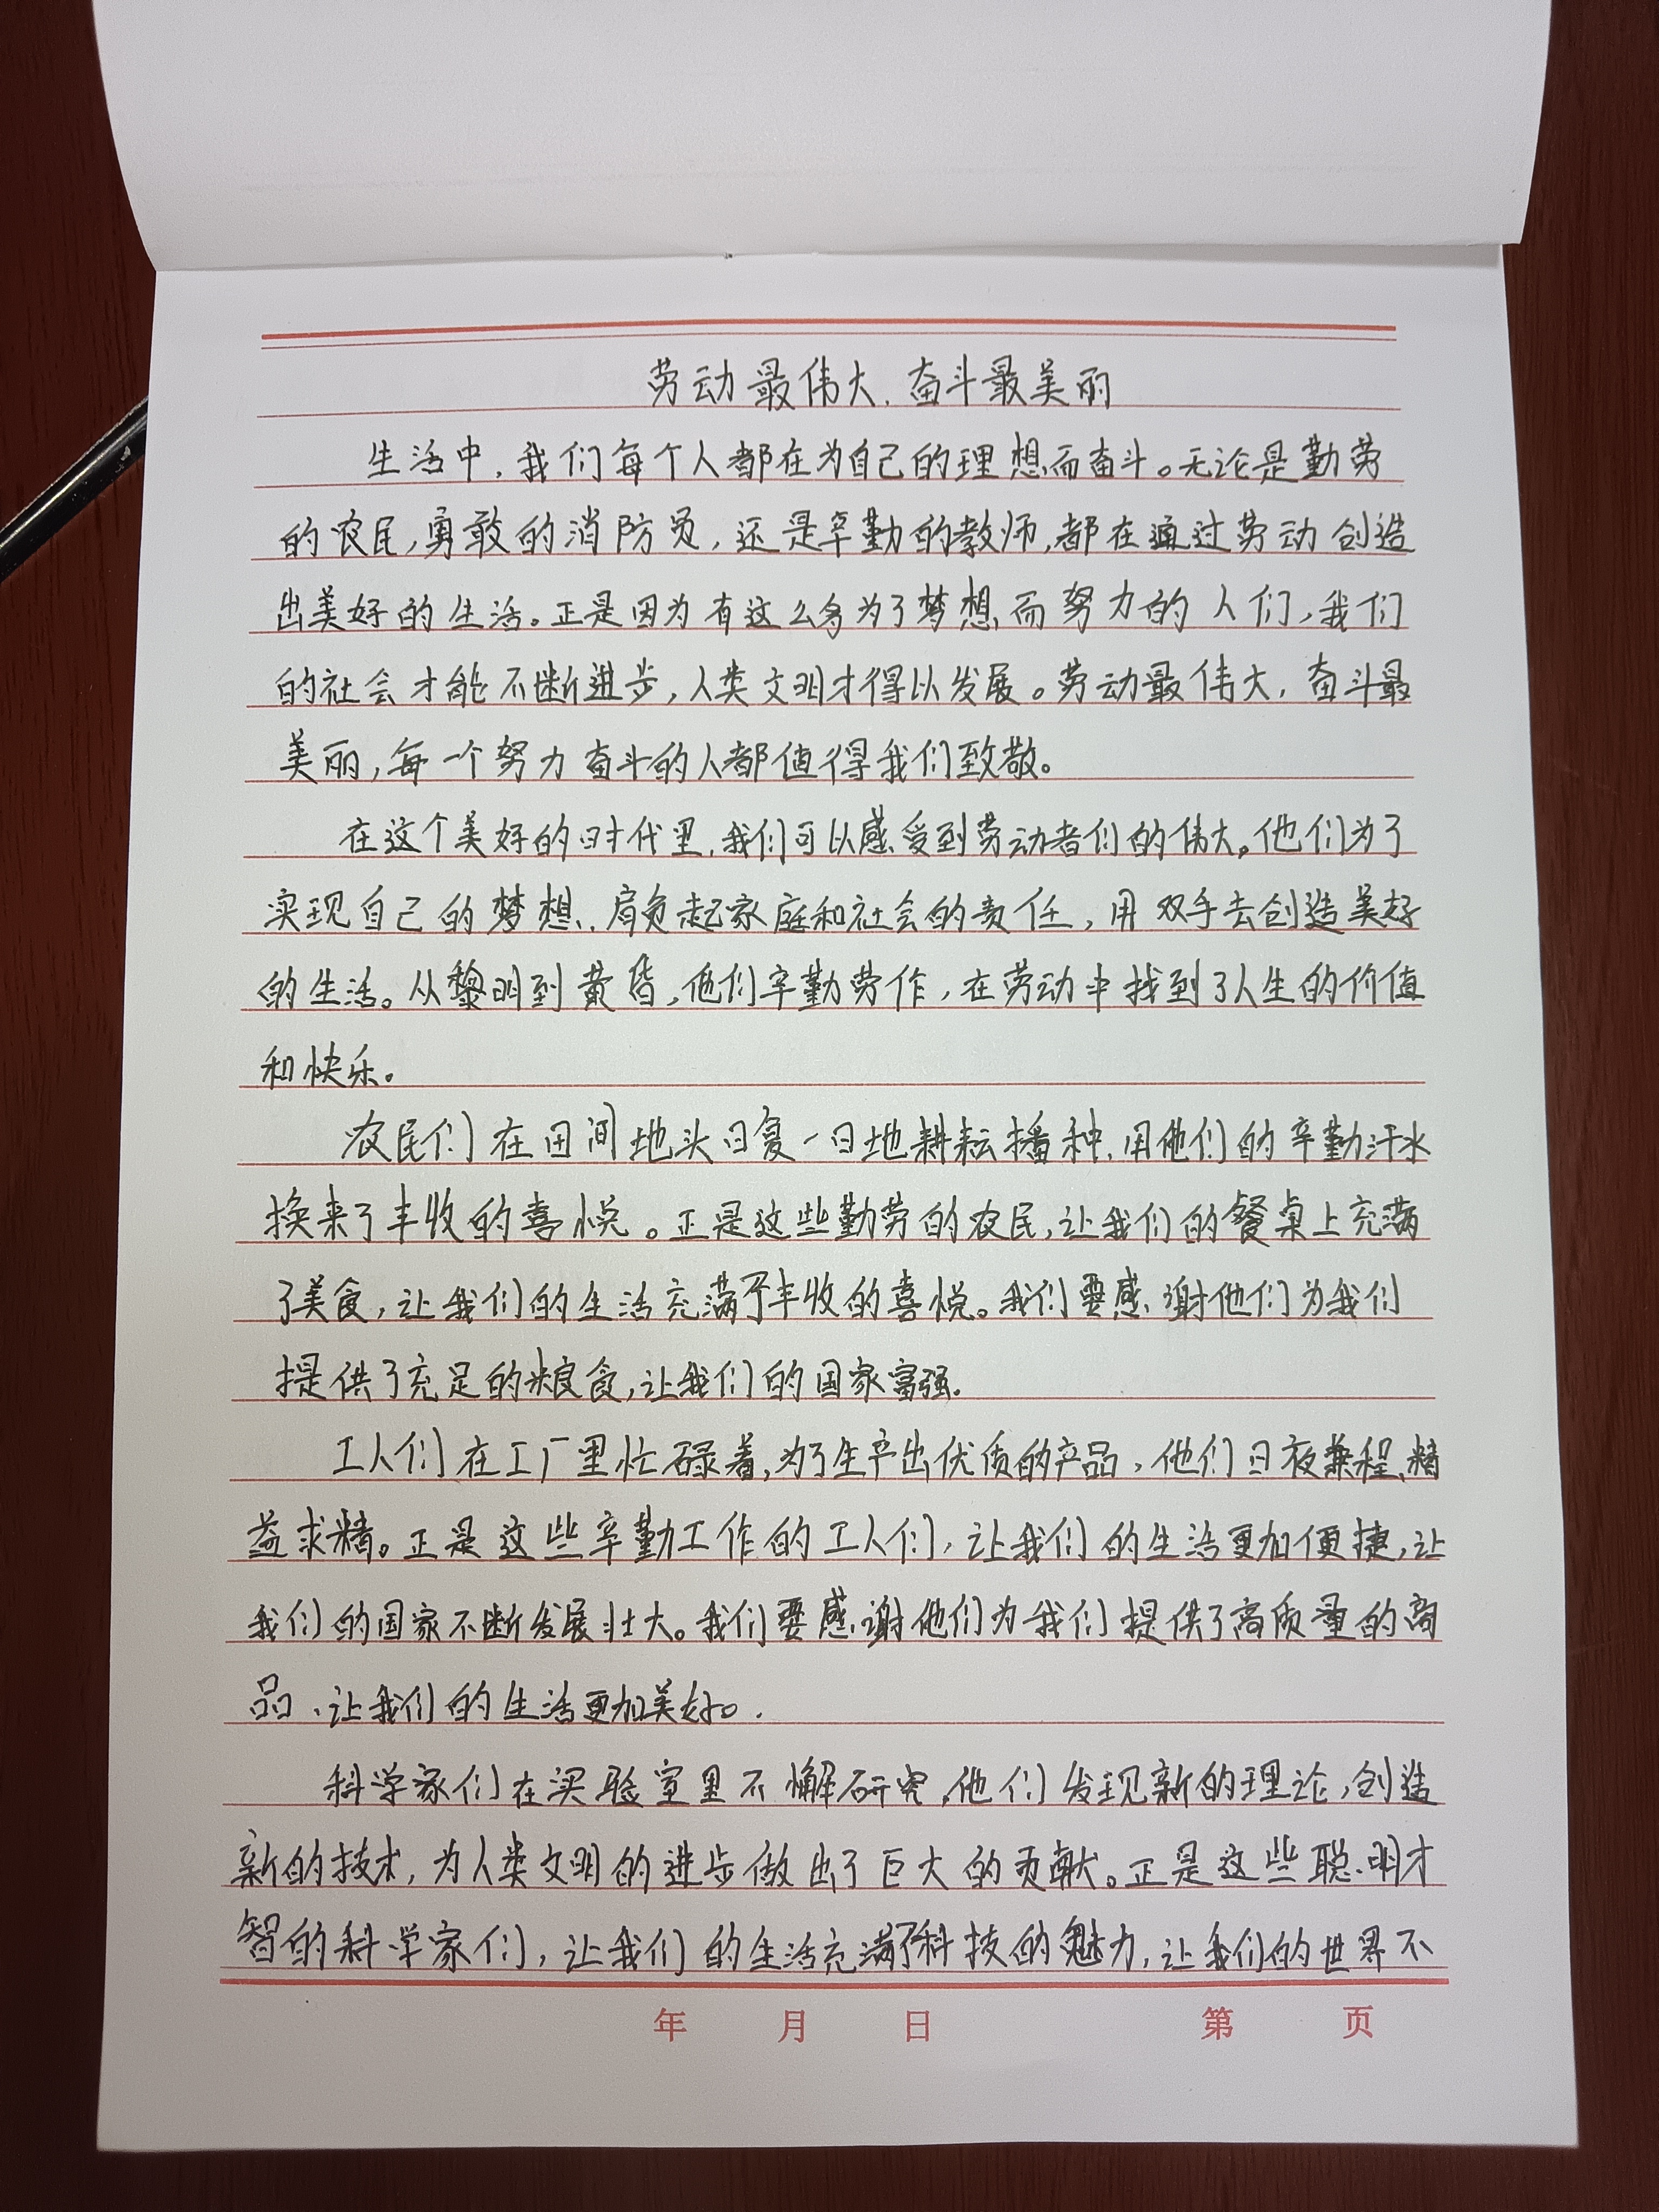 劳动最伟大,奋斗最美丽
生活中,我们每个人都在为自己的理想而奋斗。无论是勤劳
的农民,勇敢的消防员,还是辛勤的教师,都在通过劳动创造
出美好的生活。正是因为有这么多为了梦想而努力的人们,我们
的社会才能不断进步,人类文明才得以发展。劳动最伟大,奋斗最
美丽,每一个努力奋斗的人都值得我们致敬。
在这个美好的时代里,我们可以感受到劳动者们的伟大。他们为了
实现自己的梦想,肩负起家庭和社会的责任,用双手去创造美好
的生活。从黎明到黄昏,他们辛勤劳作,在劳动中找到了人生的价值
和快乐。
农民们在田间地头日复一日地耕耘播种,用他们的辛勤汗水
换来了丰收的喜悦。正是这些勤劳的农民,让我们的餐桌上充满
了美食,让我们的生活充满了丰收的喜悦。我们要感谢他们为我们
提供了充足的粮食,让我们的国家富强。
工人们在工厂里忙碌着,为了生产出优质的产品,他们日夜兼程,精
益求精。正是这些辛勤工作的工人们,让我们的生活更加便捷,让
我们的国家不断发展壮大。我们要感谢他们为我们提供了高质量的商
品,让我们的生活更加美好。
科学家们在实验室里不懈研究,他们发现新的理论,创造
新的技术,为人类文明的进步做出了巨大的贡献。正是这些聪明才
智的科学家们,让我们的生活充满了科技的魅力,让我们的世界不
年 月 日 第 页